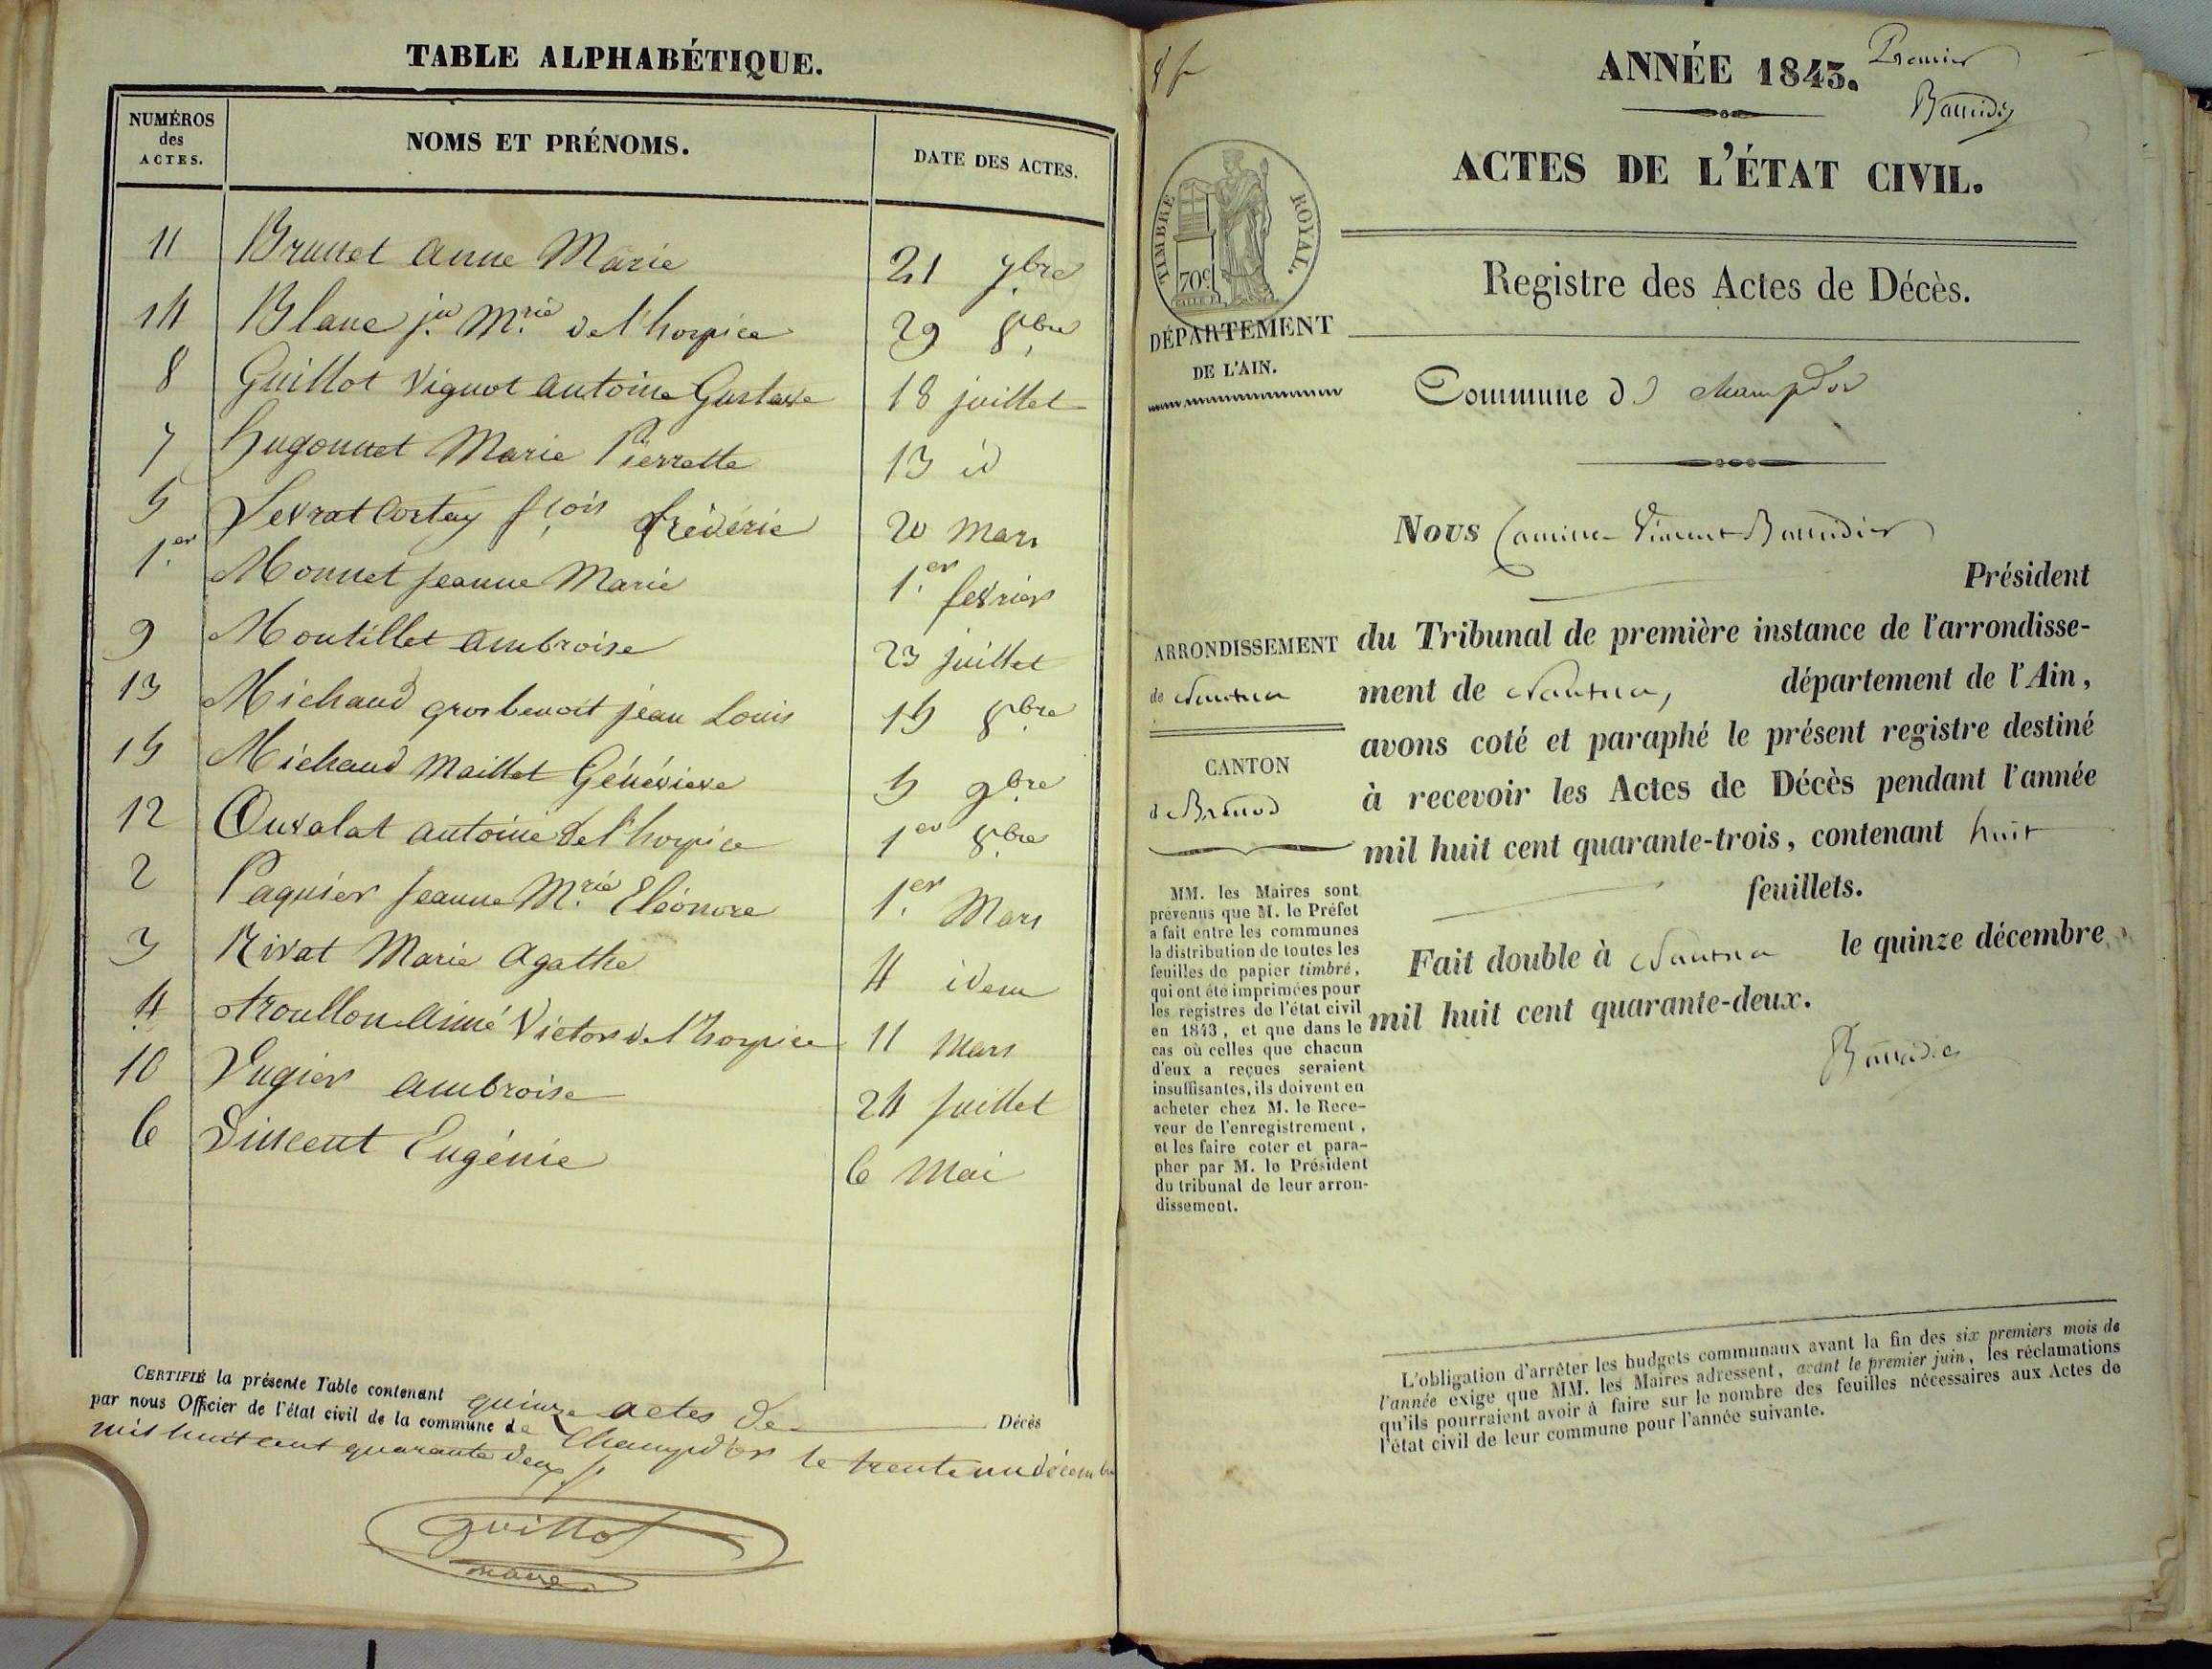 TABLE ALPHABÉTIQUE.
NUMÉROS des ACTES.
NOMS ET PRÉNOMS.
DATE DES ACTES.
11 Brunet Anne Marie 21 7bre
14 Blanc jn Mrie de l'hospice 29 8bre
8 Guillot Vignot Antoine Gustave 18 juillet
7 Hugonnet Marie Pierrette 13 id
5 Levrat Cortay fçois frédéric 20 Mars
1.er Monnet Jeanne Marie 1.er fevrier
9 Montillet Ambroise 23 juillet
13 Michaud gros benoit jean Louis 15 8bre
15 Michaud Maillet Généviève 5 9bre
12 Ouvalat antoine de l'hospice 1er 8bre
2 Paquier Jeanne M.rie Eléonore 1.er Mars
3 Rivat Marie Agathe 4 idem
4 troullon aimé Victor de l'hospice 11 Mars
10 Vugier Ambroise 24 Juillet
6 Vincent Eugénie 6 Mai
CERTIFIÉ la présente Table contenant quinze actes de Décès
par nous Officier de l'état civil de la commune de Champdor le trente un décembre
mil huit cent quarante deux
guillot
maire
ANNÉE 1843.
Premier
Baudier
ACTES DE L'ÉTAT CIVIL.
TIMBRE ROYAL.
70c
Registre des Actes de Décès.
DÉPARTEMENT
DE L'AIN.
Commune de champdor
Nous Camille Vincent
Président
ARRONDISSEMENT
de Nantua
CANTON
de Brénod
du Tribunal de première instance de l'arrondisse-
ment de Nantua, département de l'Ain,
avons coté et paraphé le présent registre destiné
à recevoir les Actes de Décès pendant l'année
mil huit cent quarante-trois, contenant huit
feuillets.
Fait double à Nantua le quinze décembre
mil huit cent quarante-deux.
MM. les Maires sont
prévenus que M. le Préfet
a fait entre les communes
la distribution de toutes les
feuilles de papier timbré,
qui ont été imprimées pour
les registres de l'état civil
en 1843, et que dans le
cas où celles que chacun
d'eux a reçues seraient
insuffisantes, ils doivent en
acheter chez M. le Rece-
veur de l'enregistrement,
et les faire coter et para-
pher par M. le Président
du tribunal de leur arron-
dissement.
L'obligation d'arrêter les budgets communaux avant la fin des six premiers mois de
l'année exige que MM. les Maires adressent, avant le premier juin, les réclamations
qu'ils pourraient avoir à faire sur le nombre des feuilles nécessaires aux Actes de
l'état civil de leur commune pour l'année suivante.